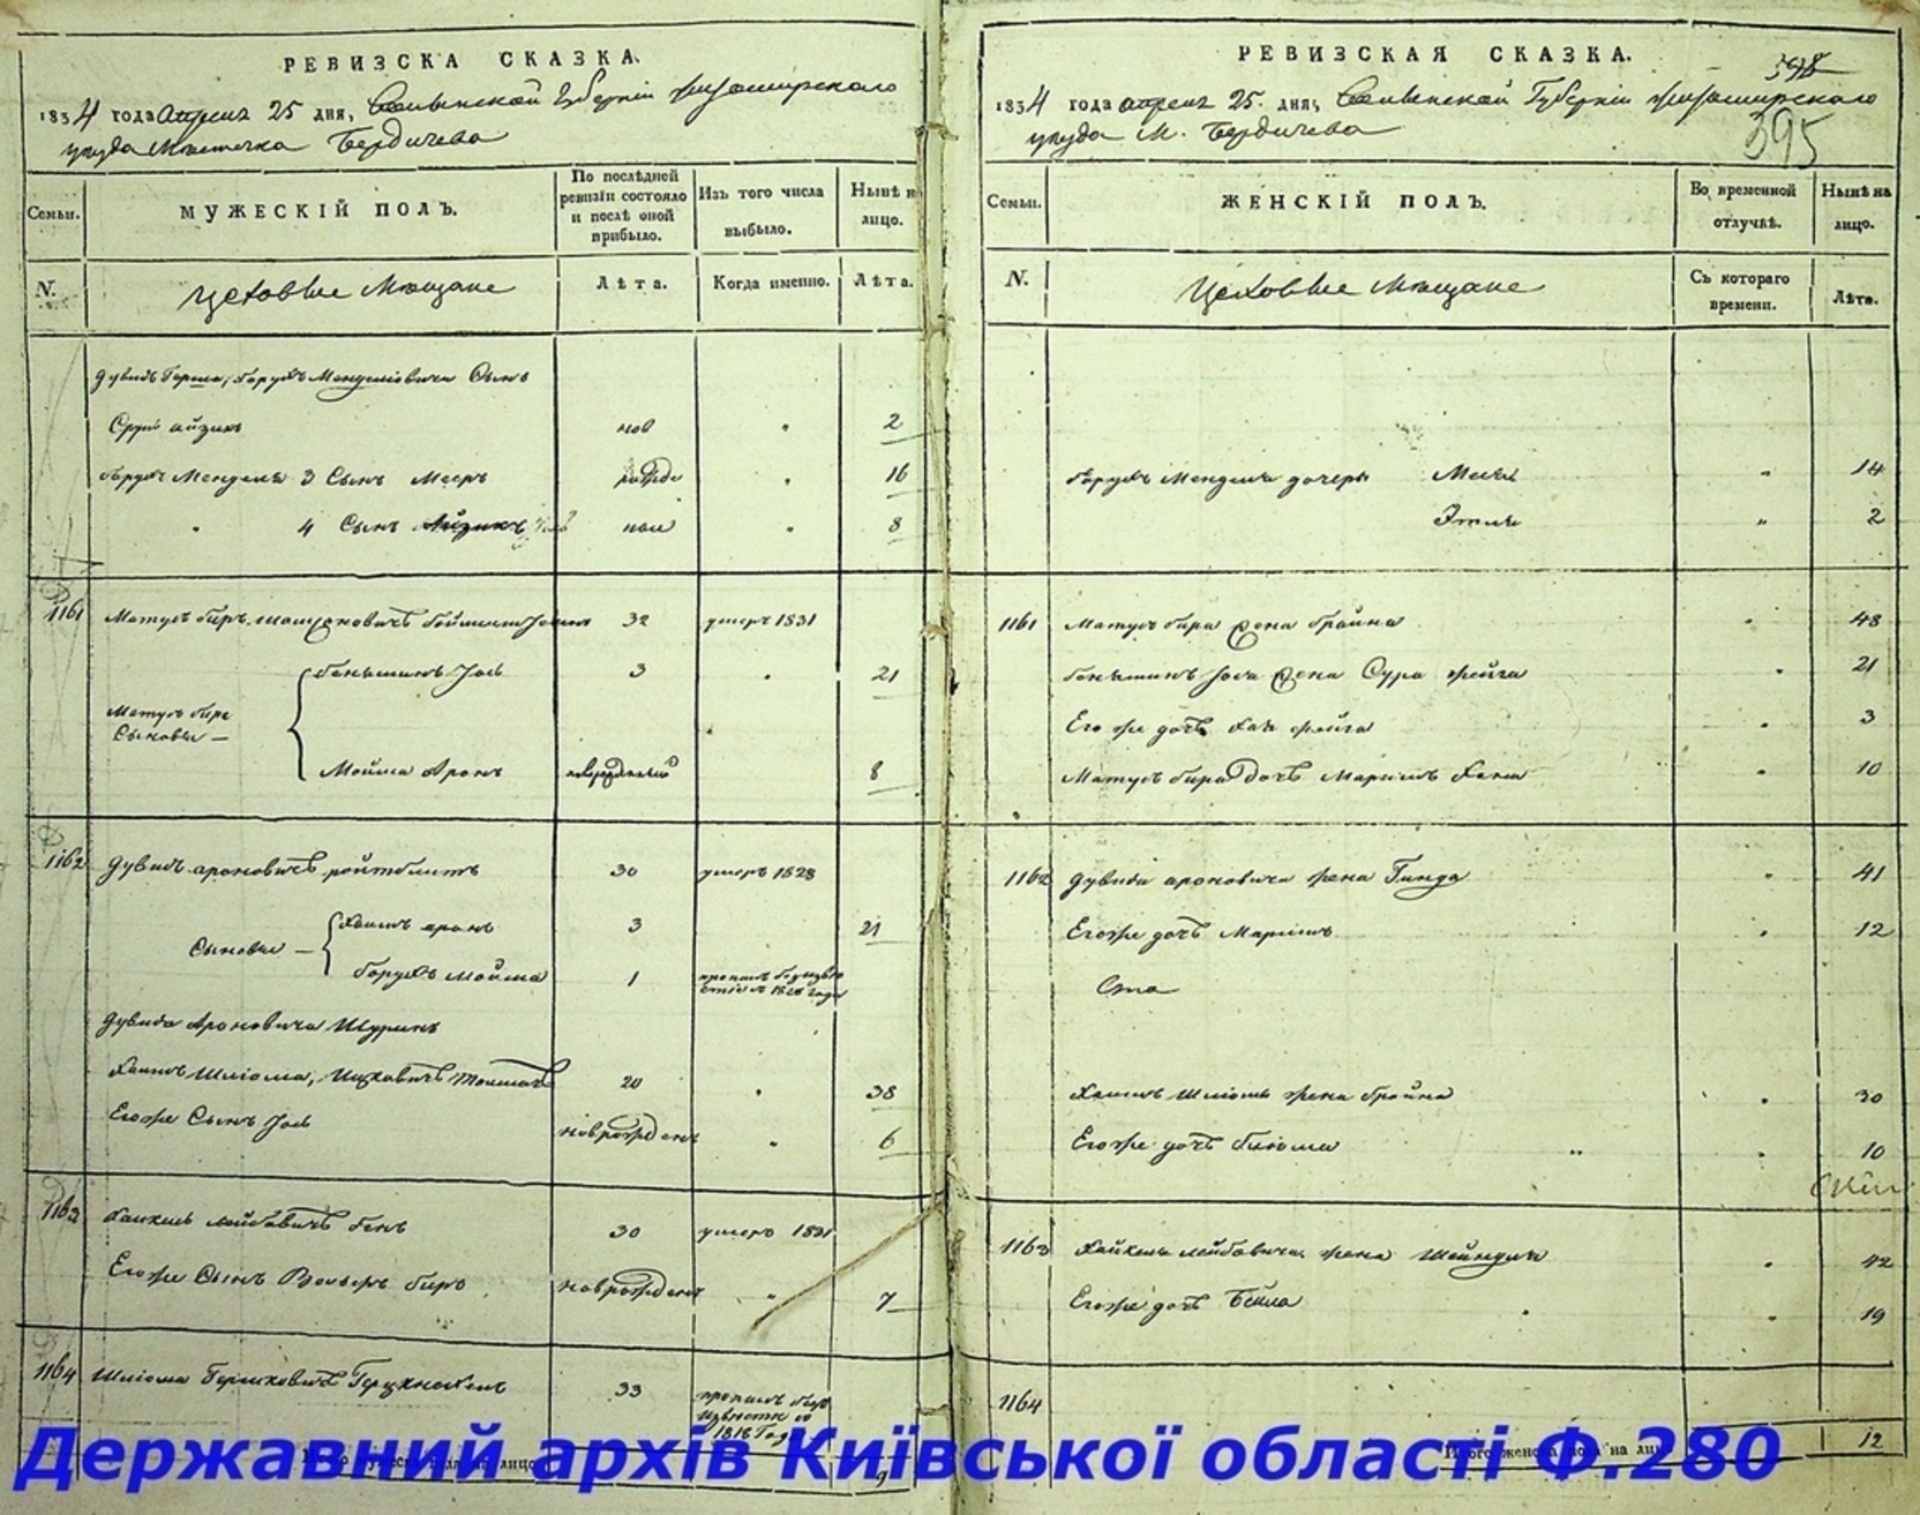 РЕВИЗСКА СКАЗКА.
1834 года апреля 25 дня, Волынской Губернии Житомирского
уезда Местечка Бердичева
Семьи.
МУЖЕСКІЙ ПОЛЪ.
По послѣдней ревизіи состояло и послѣ оной прибыло.
Изъ того числа выбыло.
Нынѣ на лицо.
N.
Цеховые Мещане
Лѣта.
Когда именно.
Лѣта.
Дувидъ Герша, Борухъ Менделіовича Сынъ
Сруль Айзикъ нов 2
Борухъ Менделя 3 Сынъ Мееръ 16
" 4 Сынъ Айзикъ 8
1161 Матусъ Беръ 32 умеръ 1831
Беньяминъ Іось 3 21
Матусъ Бера
Сыновья
Мойша Аронъ новорожденный 8
1162 Дувидъ Ароновичъ Ройтблитъ 30 умеръ 1828
Сыновья Хаимъ Аронъ 3 21
Борухъ Мойша 1
Дувида Ароновича Шуринъ
Хаимъ Шліома, Ицковичъ 20 38
Егоже Сынъ Іось новрожден 6
1163 Хайкель Лейбовичъ 30 умеръ 1831
Егоже Сынъ Вольфъ Беръ новрожден " 7
1164 Шліома Гершковичъ 33 пропалъ безъ
извести
1818 Год
9
РЕВИЗСКАЯ СКАЗКА.
398
395
1834 года апреля 25. дня, Волынской Губерніи Житомирского
уезда М. Бердичева
Семьи.
ЖЕНСКІЙ ПОЛЪ.
Во временной отлучкѣ.
Нынѣ на лицо.
N.
Цеховые Мещане
Съ котораго времени.
Лѣта.
Борухъ Менделя дочеры 14
Этля " 2
1161 Матусъ Бера жена Брайна 48
Беньяминъ Іося жена Сура Фейга 21
Егоже дочь Хая Фейга 3
Матусъ Бера дочь Маріимъ 10
1162 Дувида Ароновича жена Гинда 41
Егоже дочь Маріимъ 12
Хаимъ Шліомы жена Брайна 30
Егоже дочь Блюма 10
1163 Хайкель Лейбовича жена Шейндля 42
Егоже дочь Бейла 19
1164
Итого женска пола на лицо 12
Державний архів Київської області Ф.280